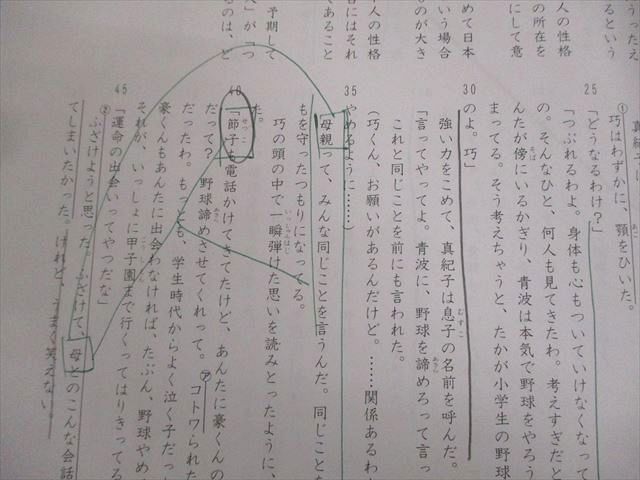 うったえ
るという
人の性格
の所在を
にして意
めて日本
いう場合
ものが大き
人の性格
容にはそれ
であること
予期して
人」が「つ
るのは、ど
真紀子は
①
巧はわずかに、顎をひいた。
あご
25
「どうなるわけ？」
「つぶれるわよ。身体も心もついていけなくなって
の。そんなひと、何人も見てきたわ。考えすぎだと
んたが傍にいるかぎり、青波は本気で野球をやろう
そば
まってる。そう考えちゃうと、たかが小学生の野球
30
のよ。巧」
強い力をこめて、真紀子は息子の名前を呼んだ。
むすこ
「言ってやってよ。青波に、野球を諦めろって言っ
あきら
これと同じことを前にも言われた。
（巧くん、お願いがあるんだけど。……関係あるわ
35
やめるように……）
「母親って、みんな同じことを言うんだ。同じことを
もを守ったつもりになってる。
巧の頭の中で一瞬弾けた思いを読みとったように、
いっしゅんはじ
た。
40
「節子も電話かけてきてたけど、あんたに豪くんの
せつこ
だって？　野球諦めさせてくれって。㋐コトワられた
あきら
だったわ。もっとも、学生時代からよく泣く子だっ
豪くんもあんたに出会わなければ、たぶん、野球やめ
それが、いっしょに甲子園まで行くってはりきってる
こうしえん
45
「運命の出会いってやつだな」
②
ふざけようと思った。ふざけて、母とのこんな会話
てしまいたかった。けれど、うまく笑えない